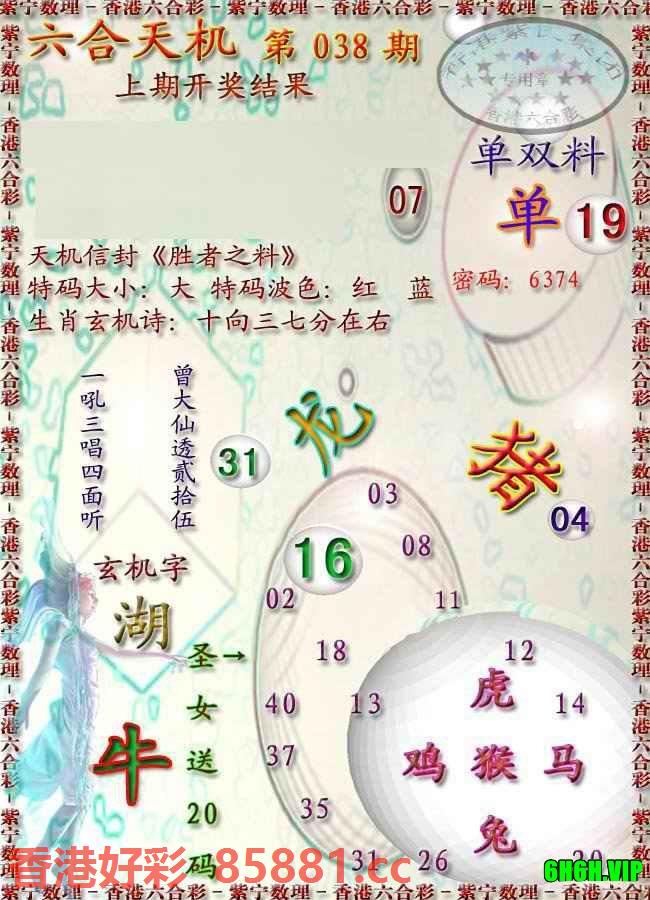 紫宁数理－香港六合彩－紫宁数理－香港六合彩－紫宁数理－香港六合彩－紫宁数理－香港六合彩
六合天机 第 038 期
上期开奖结果
专用章
香港六合彩
单双料
07
单 19
天机信封《胜者之料》
特码大小：大 特码波色：红 蓝
密码：6374
生肖玄机诗：十向三七分在右
曾大仙透贰拾伍
一吼三唱四面听
31
龙
猪
04
03
16
08
玄机字
湖
02
11
圣女送20码
→
18
12
虎
40
13
14
牛
37
鸡 猴 马
35
兔
31
26
20
香港好彩 85881.cc
6H6H.VIP
紫宁数理－香港六合彩－紫宁数理－香港六合彩－紫宁数理－香港六合彩－紫宁数理－香港六合彩